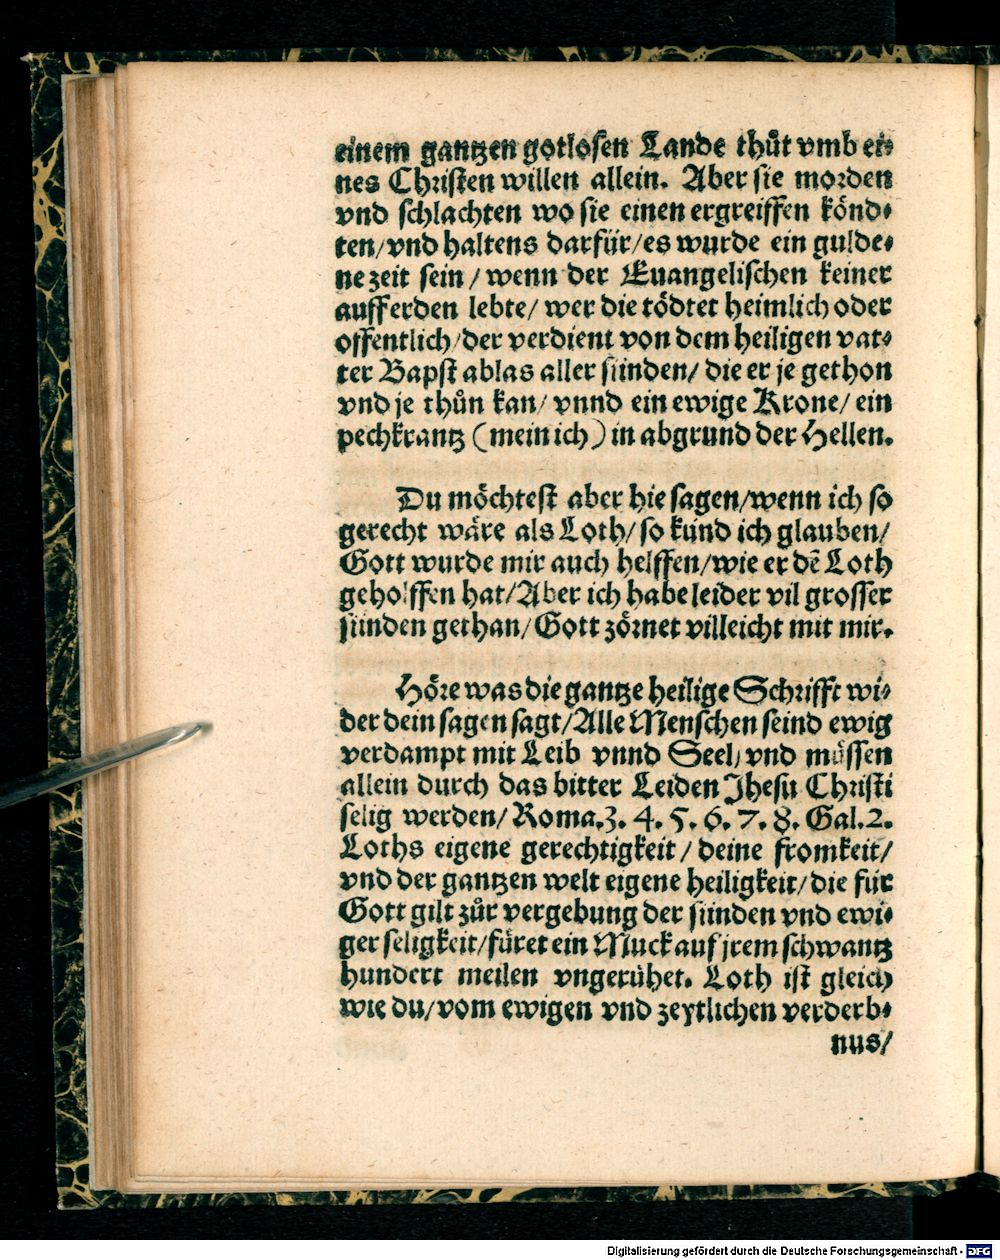 einem gantzen gotlosen Lande thůt vmb ei⸗
nes Christen willen allein. Aber sie morden
vnd schlachten wo sie einen ergreiffen könd⸗
ten/vnd haltens darfür/es wurde ein gulde⸗
ne zeit sein / wenn der Euangelischen keiner
auff erden lebte/ wer die tödtet heimlich oder
offentlich/der verdient von dem heiligen vat⸗
ter Bapst ablas aller sünden/ die er je gethon
vnd je thůn kan/ vnnd ein ewige Krone/ ein
pechkrantz (mein ich) in abgrund der Hellen.
Du möchtest aber hie sagen/wenn ich so
gerecht wäre als Loth/ so künd ich glauben/
Gott wurde mir auch helffen/wie er dē Loth
geholffen hat/Aber ich habe leider vil grosser
sünden gethan/ Gott zörnet villeicht mit mir.
Höre was die gantze heilige Schrifft wi⸗
der dein sagen sagt/Alle Menschen seind ewig
verdampt mit Leib vnnd Seel/ vnd müssen
allein durch das bitter Leiden Jhesu Christi
selig werden/ Roma.3. 4. 5. 6. 7. 8. Gal.2.
Loths eigene gerechtigkeit / deine fromkeit/
vnd der gantzen welt eigene heiligkeit/ die für
Gott gilt zůr vergebung der sünden vnd ewi⸗
ger seligkeit/füret ein Muck auf jrem schwantz
hundert meilen vngerühet. Loth ist gleich
wie du/vom ewigen vnd zeytlichen verderb⸗
nus/
Digitalisierung gefördert durch die Deutsche Forschungsgemeinschaft - DFG